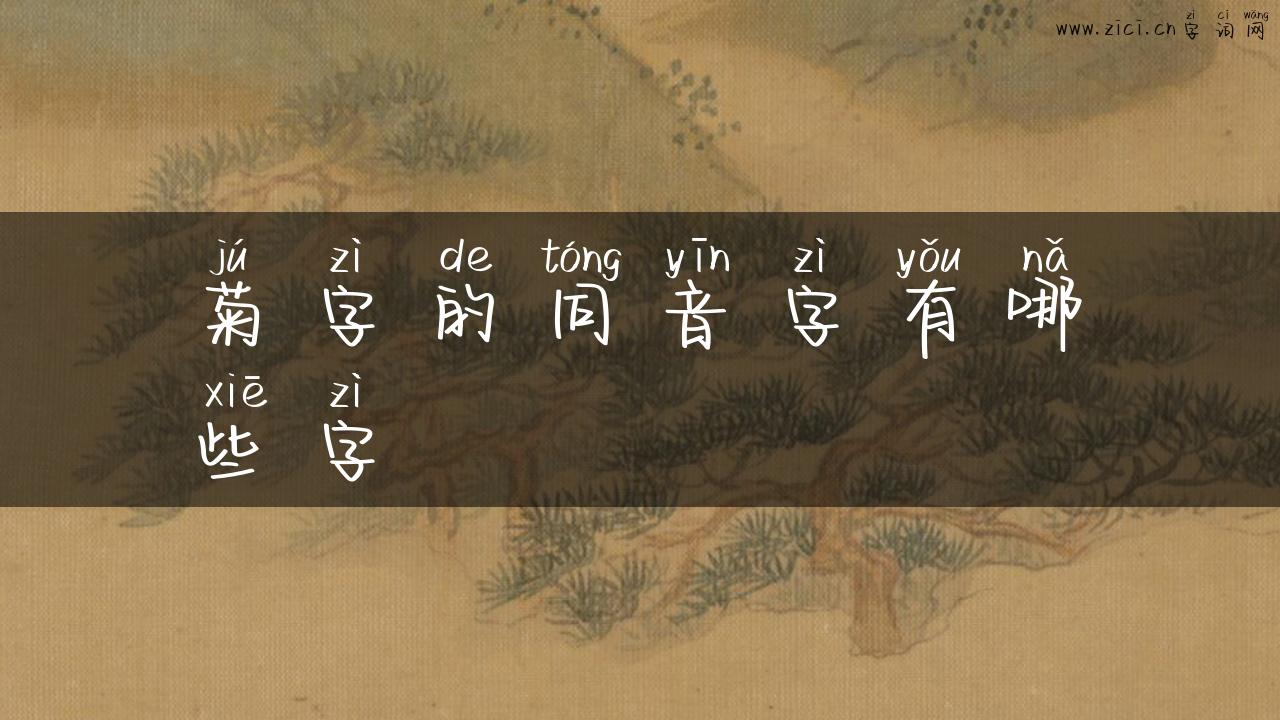 zì cí wǎng
www.zici.cn 字词网
jú zì de tóng yīn zì yǒu nǎ
菊字的同音字有哪
xiē zì
些字